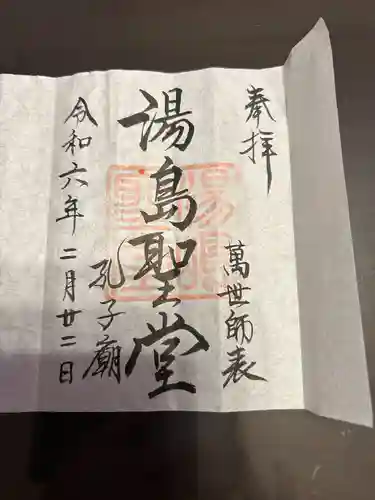 奉拝
萬世師表
湯島聖堂
孔子廟
令和六年二月廿二日